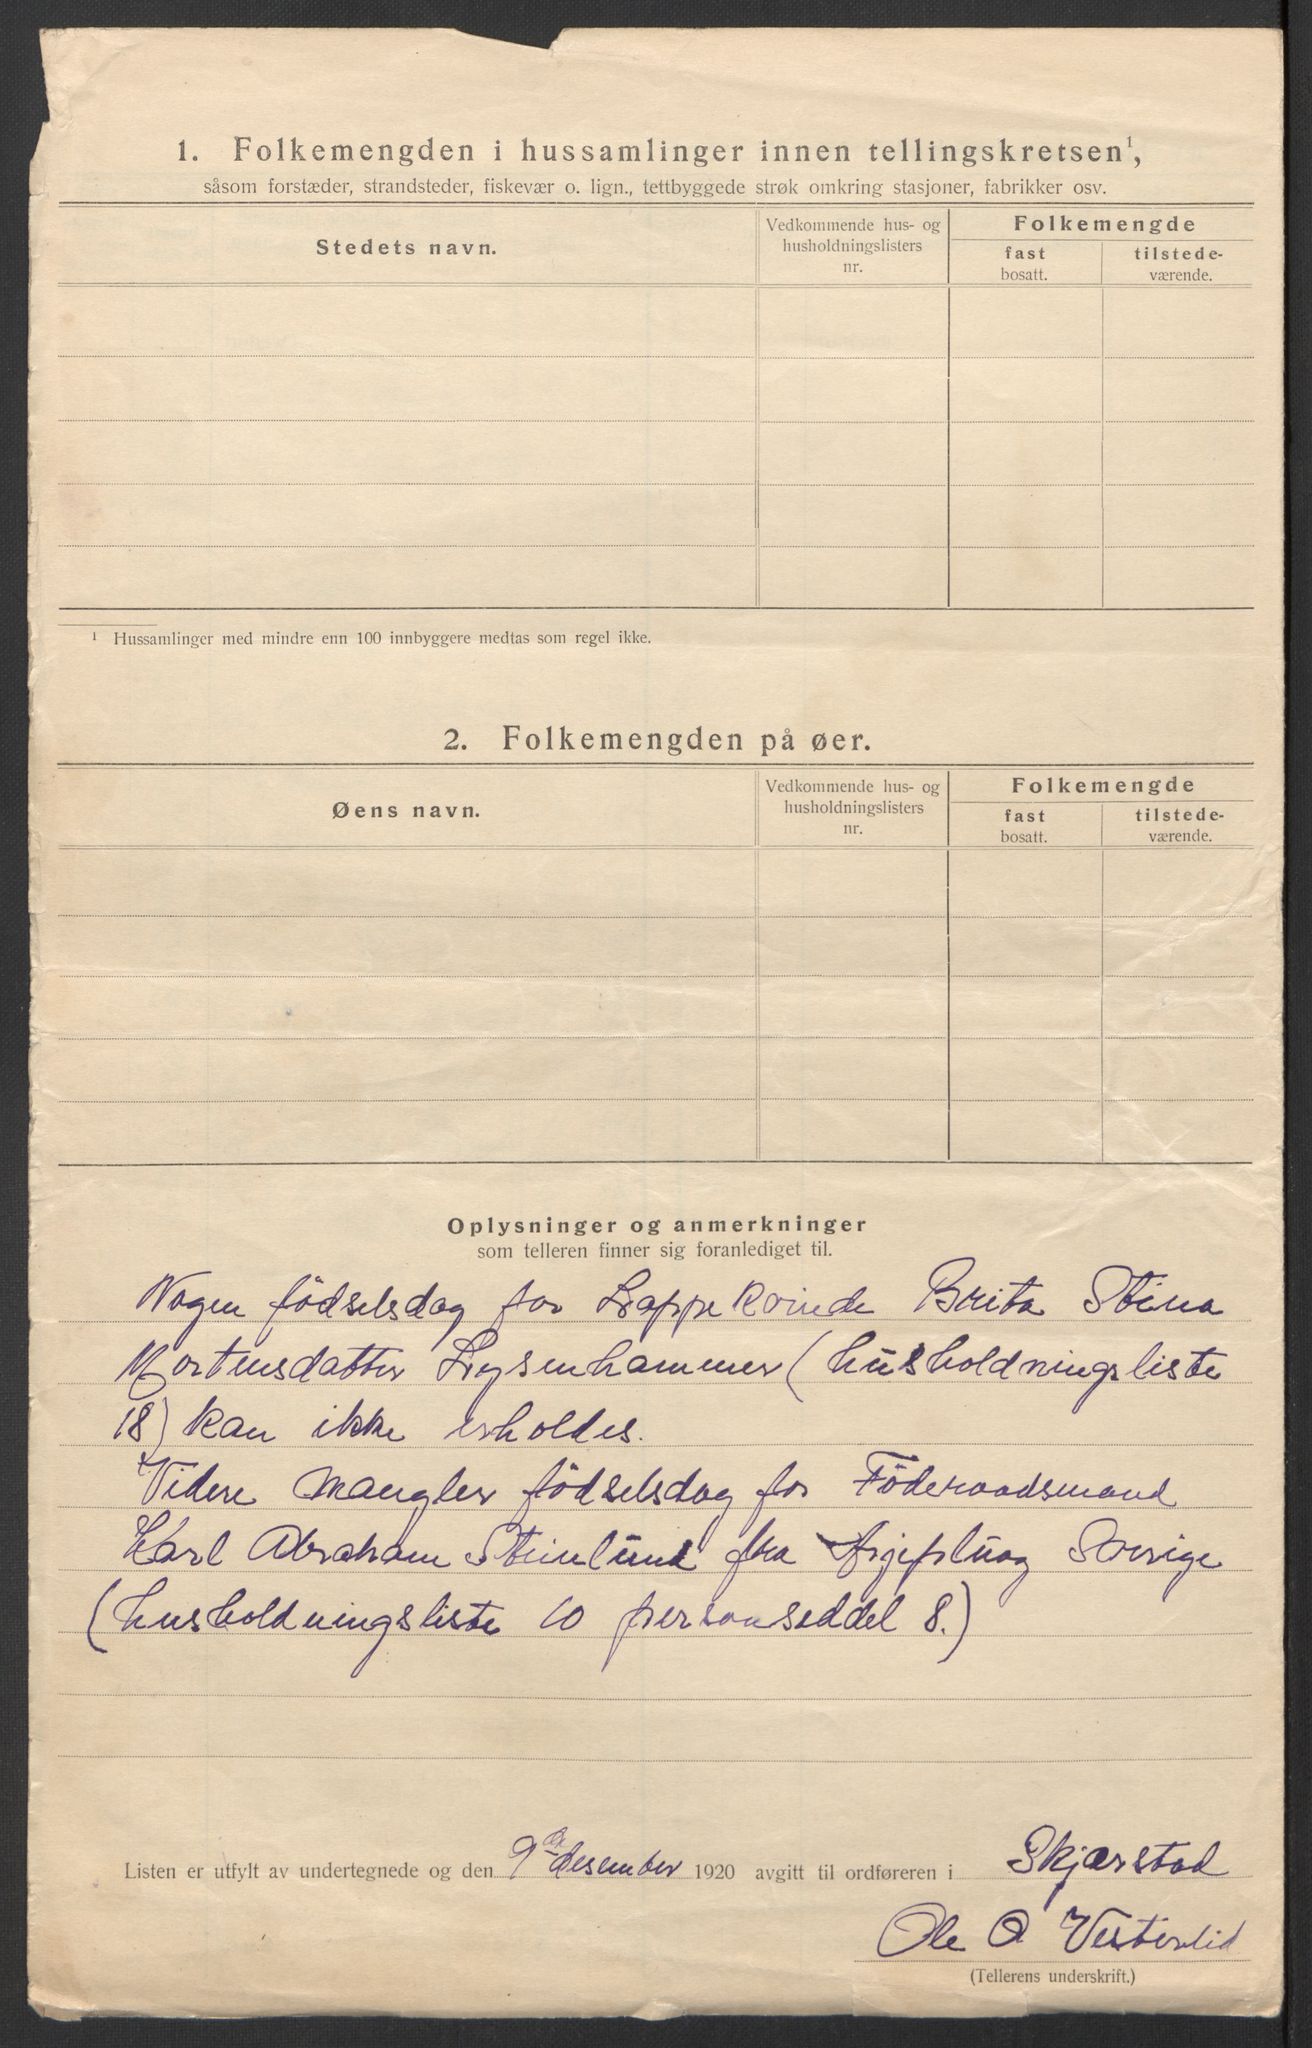 1. Folkemengden i hussamlinger innen tellingskretsen¹,
såsom forstæder, strandsteder, fiskevær o. lign., tettbyggede strøk omkring stasjoner, fabrikker osv.
Stedets navn.
Vedkommende hus- og
husholdningslisters
nr.
Folkemengde
fast
bosatt.
tilstede-
værende.
¹ Hussamlinger med mindre enn 100 innbyggere medtas som regel ikke.
2. Folkemengden på øer.
Øens navn.
Vedkommende hus- og
husholdningslisters
nr.
Folkemengde
fast
bosatt.
tilstede-
værende.
Oplysninger og anmerkninger
som telleren finner sig foranlediget til.
Nogen födselsdag for Lappekvinde Brita Stina
Mortensdatter Lysenhammer (husholdningsliste
18) kan ikke erholdes.
Videre mangler födselsdag for Föderaadsmand
Karl Abraham Steinlund fra Arjepluog Sverige
(husholdningsliste 10 personseddel 8.)
Listen er utfylt av undertegnede og den 9de desember 1920 avgitt til ordføreren i Skjærstad
Ole O Vesterlid
(Tellerens underskrift.)